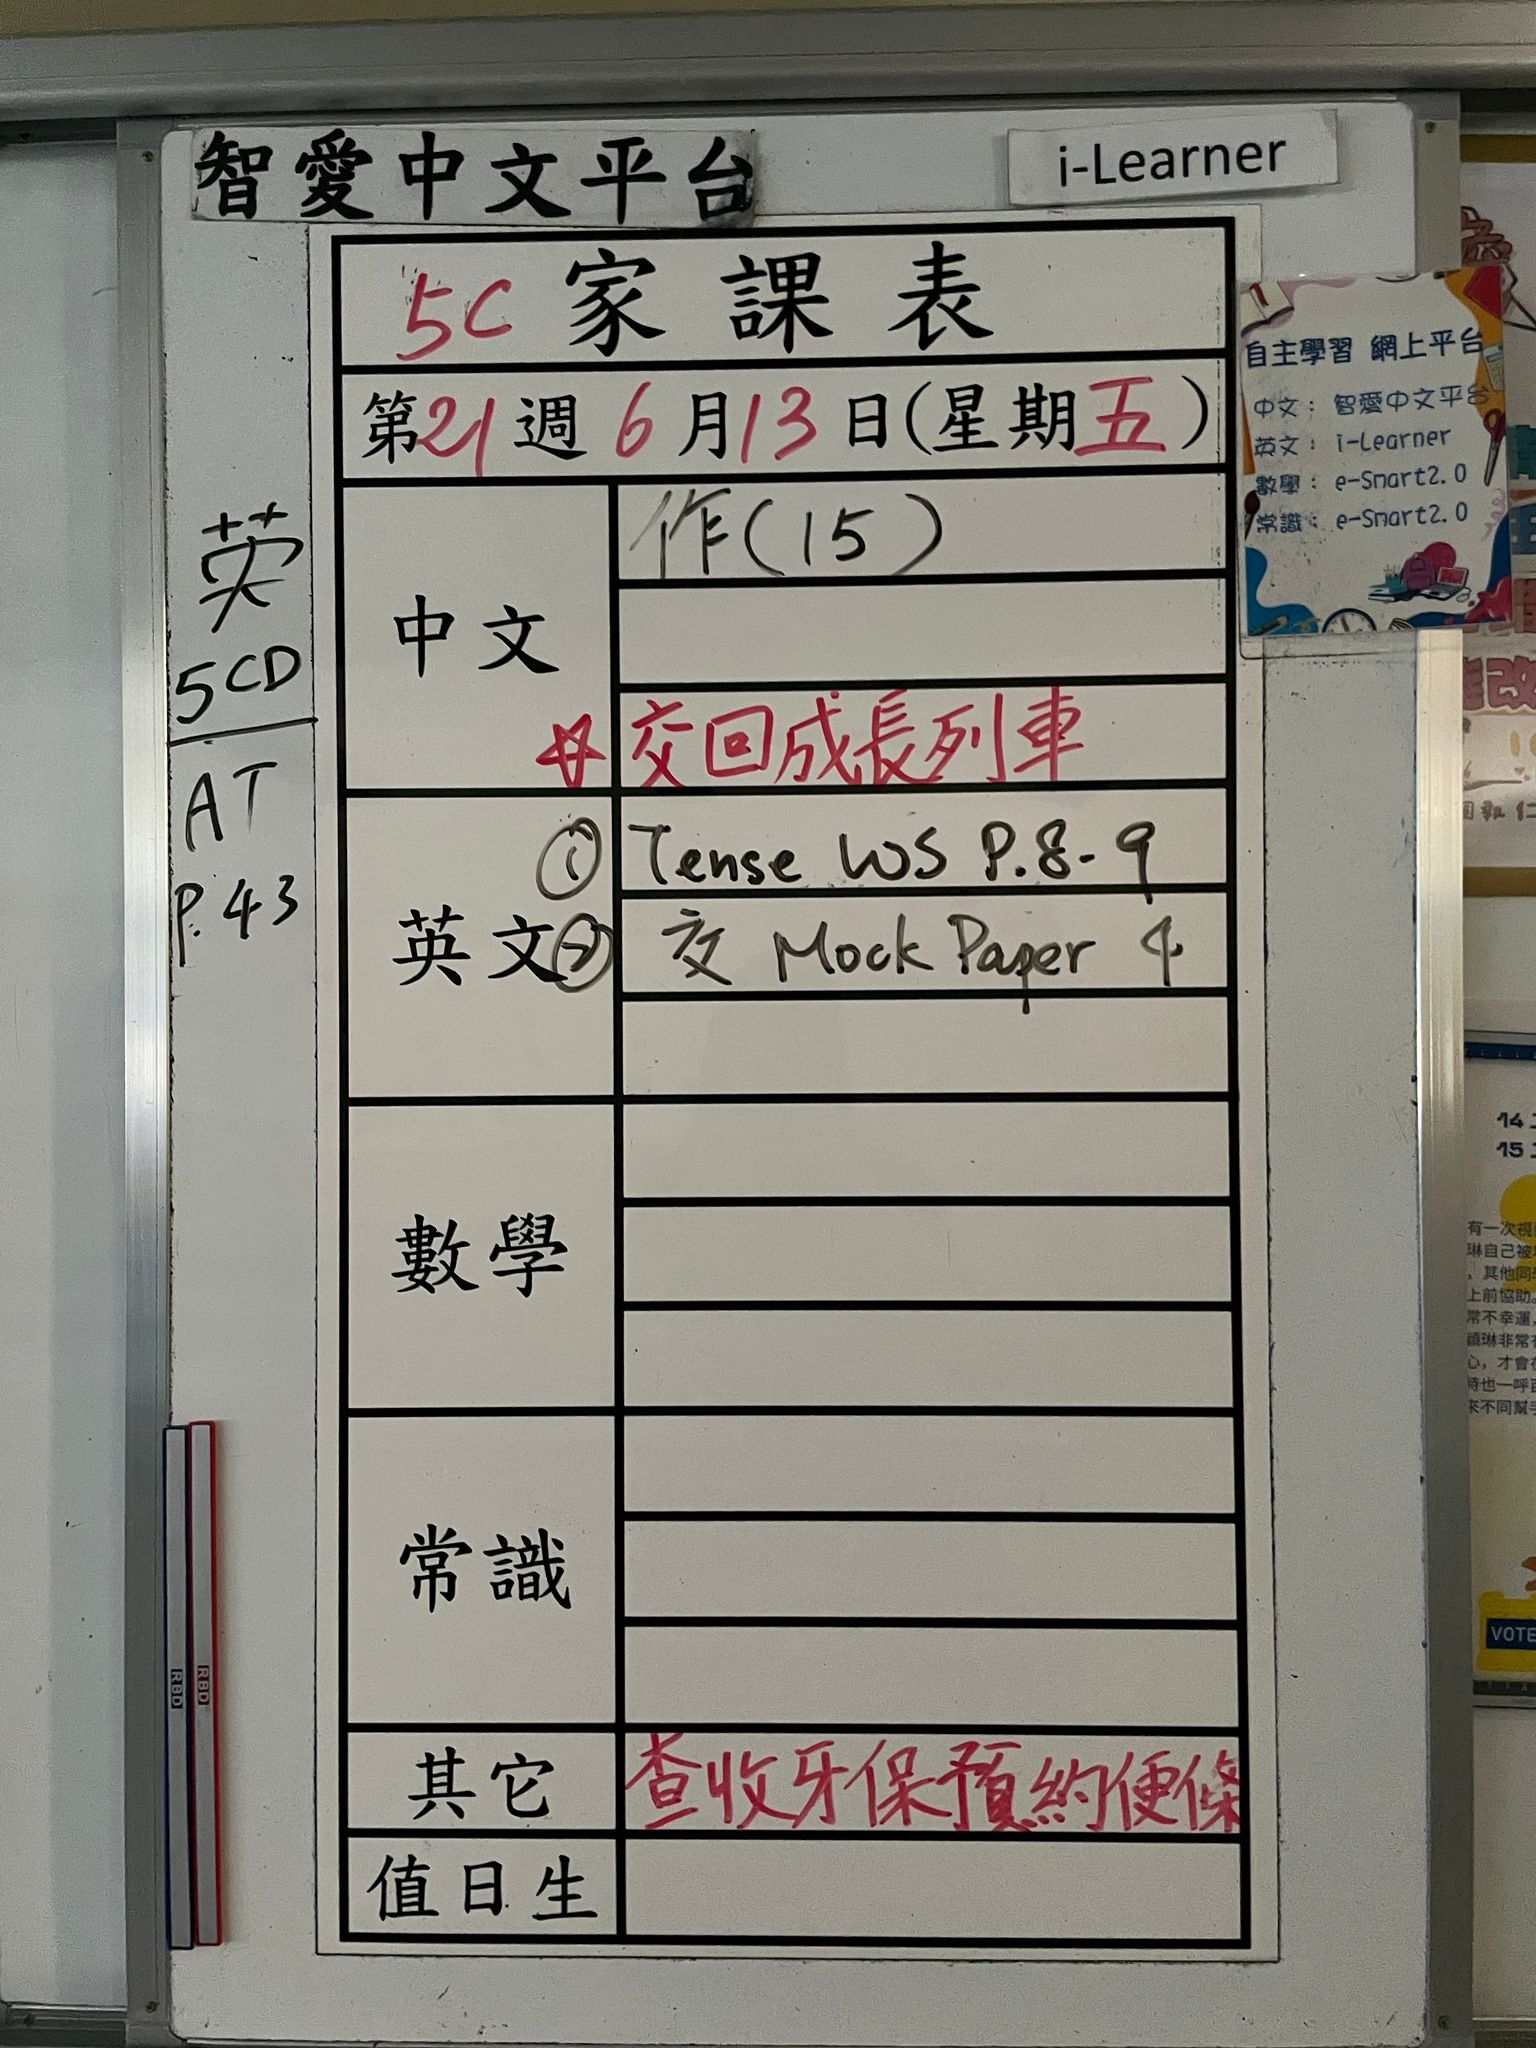 智愛中文平台
i-Learner
5C 家課表
第21週 6月13日(星期五)
中文
作(15)
☆交回成長列車
英文
① Tense WS P.8-9
② 交 Mock Paper 4
數學
常識
其它
查收牙保預約便條
值日生
英
5CD
AT
P.43
RBD
RBD
自主學習 網上平台
中文：智愛中文平台
英文：i-Learner
數學：e-Smart2.0
常識：e-Smart2.0
14
15
有一次視
琳自己被
，其他同
上前協助。
常不幸運，
穎琳非常
心，才會
時也一呼
來不同幫
VOTE